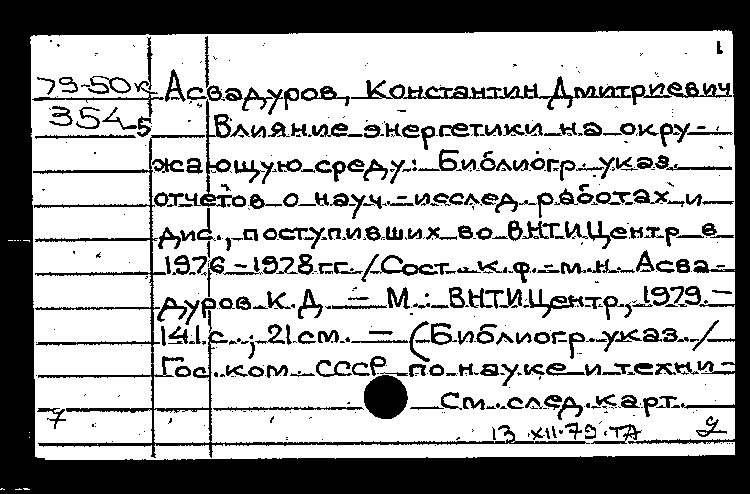 1
79-50к Асвадуров, Константин Дмитриевич
354-5 Влияние энергетики на окру-
жающую среду: Библиогр. указ.
отчетов о науч.-исслед. работах и
дис., поступивших во ВНТИЦентр в
1976-1978 гг. / Сост. к.ф.-м.н. Асва-
дуров К.Д. - М.: ВНТИЦентр, 1979. -
141 с.; 21 см. - (Библиогр. указ. /
Гос. ком. СССР по науке и техни-
См. след. карт.
13.XII.79.ТА